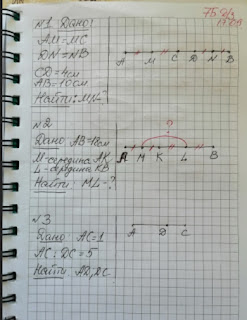 75 г/з
№1 Дано:
AM=MC
DN=NB
CD=4см
AB=10см
Найти: MN-
A M C D N B
№2
Дано AB=18см
M-середина AK
L-середина KB
Найти: ML-?
?
A M K L B
№3
Дано AC=1
AC:DC=5
Найти AD, DC
A D C